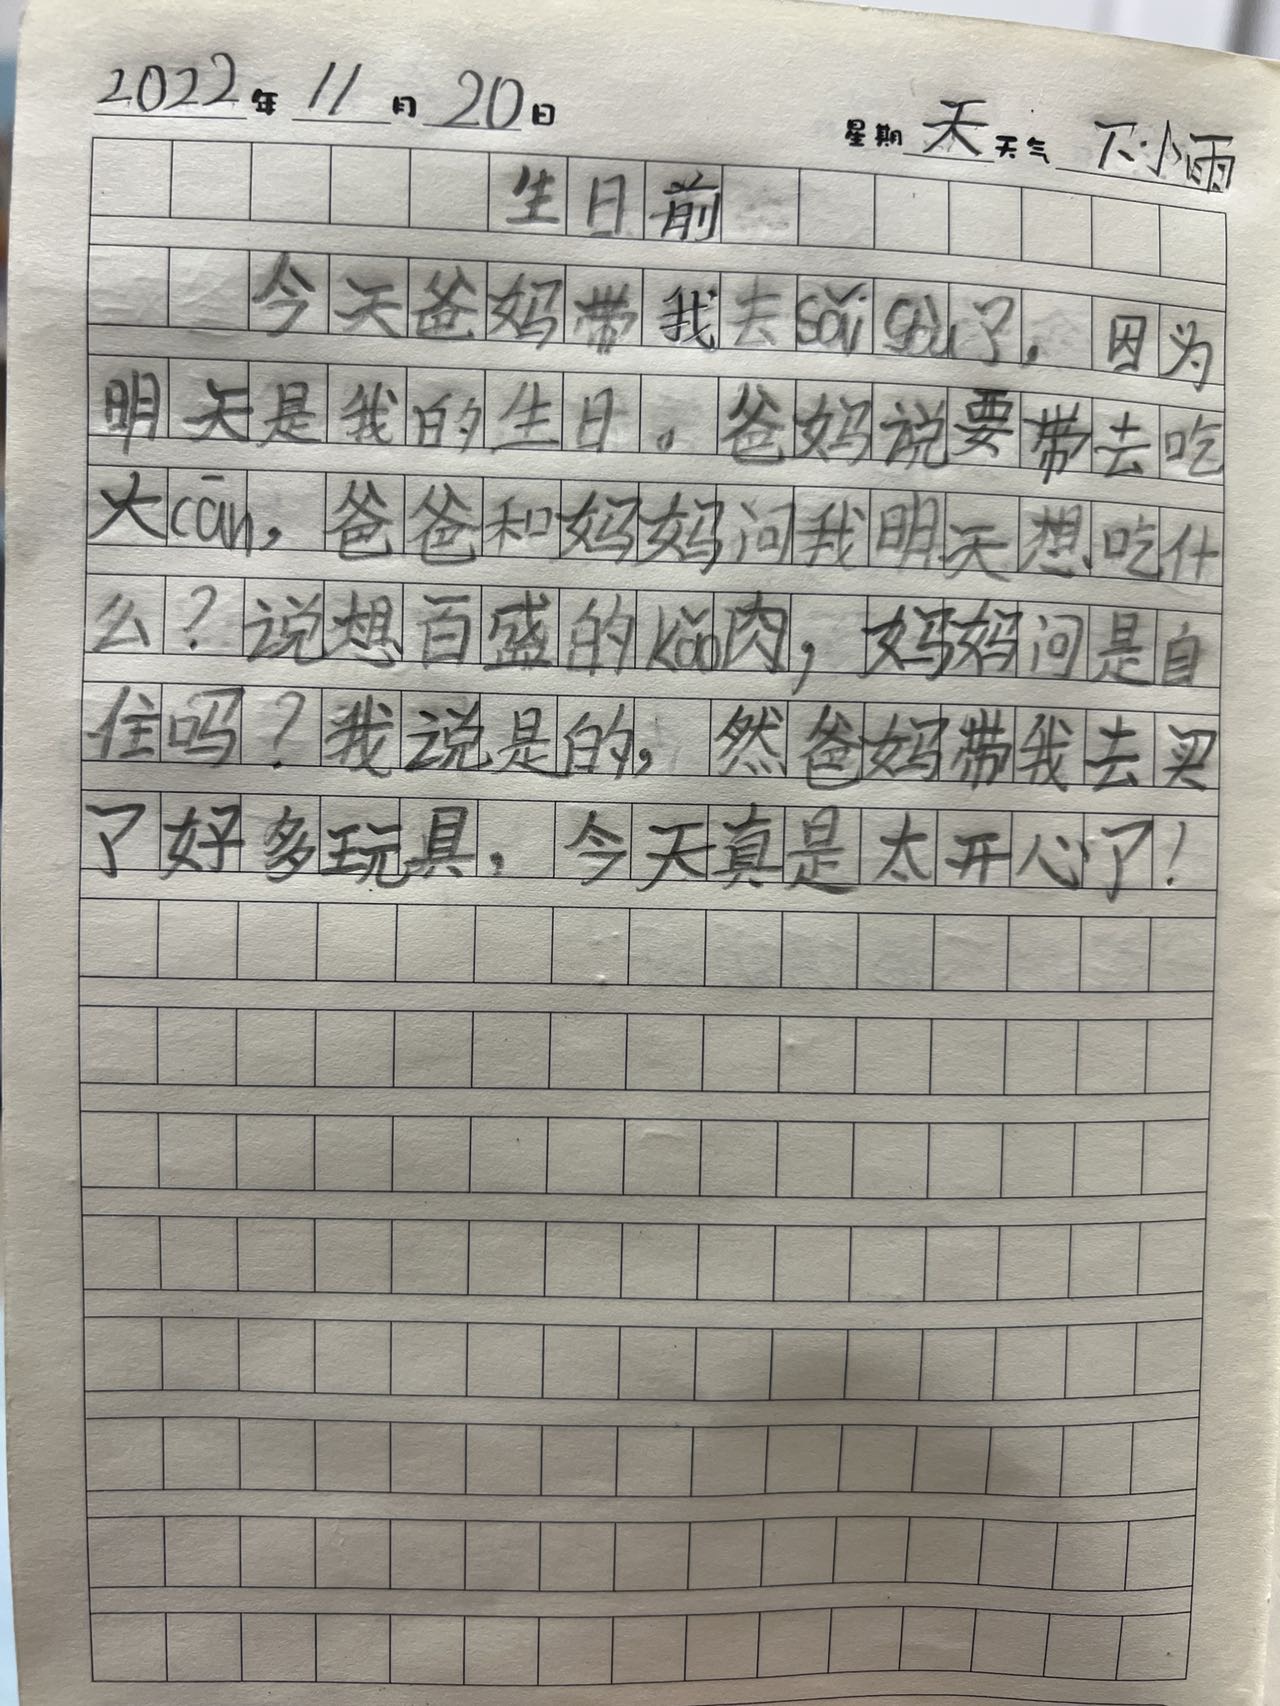 2022年 11月 20日 星期 天 天气 下小雨
生日前
今天爸妈带我去sǎi gòu了,因为
明天是我的生日。爸妈说要带去吃
大cān,爸爸和妈妈问我明天想吃什
么?说想百盛的kǎo肉,妈妈问是自
住吗?我说是的,然爸妈带我去买
了好多玩具,今天真是太开心了!